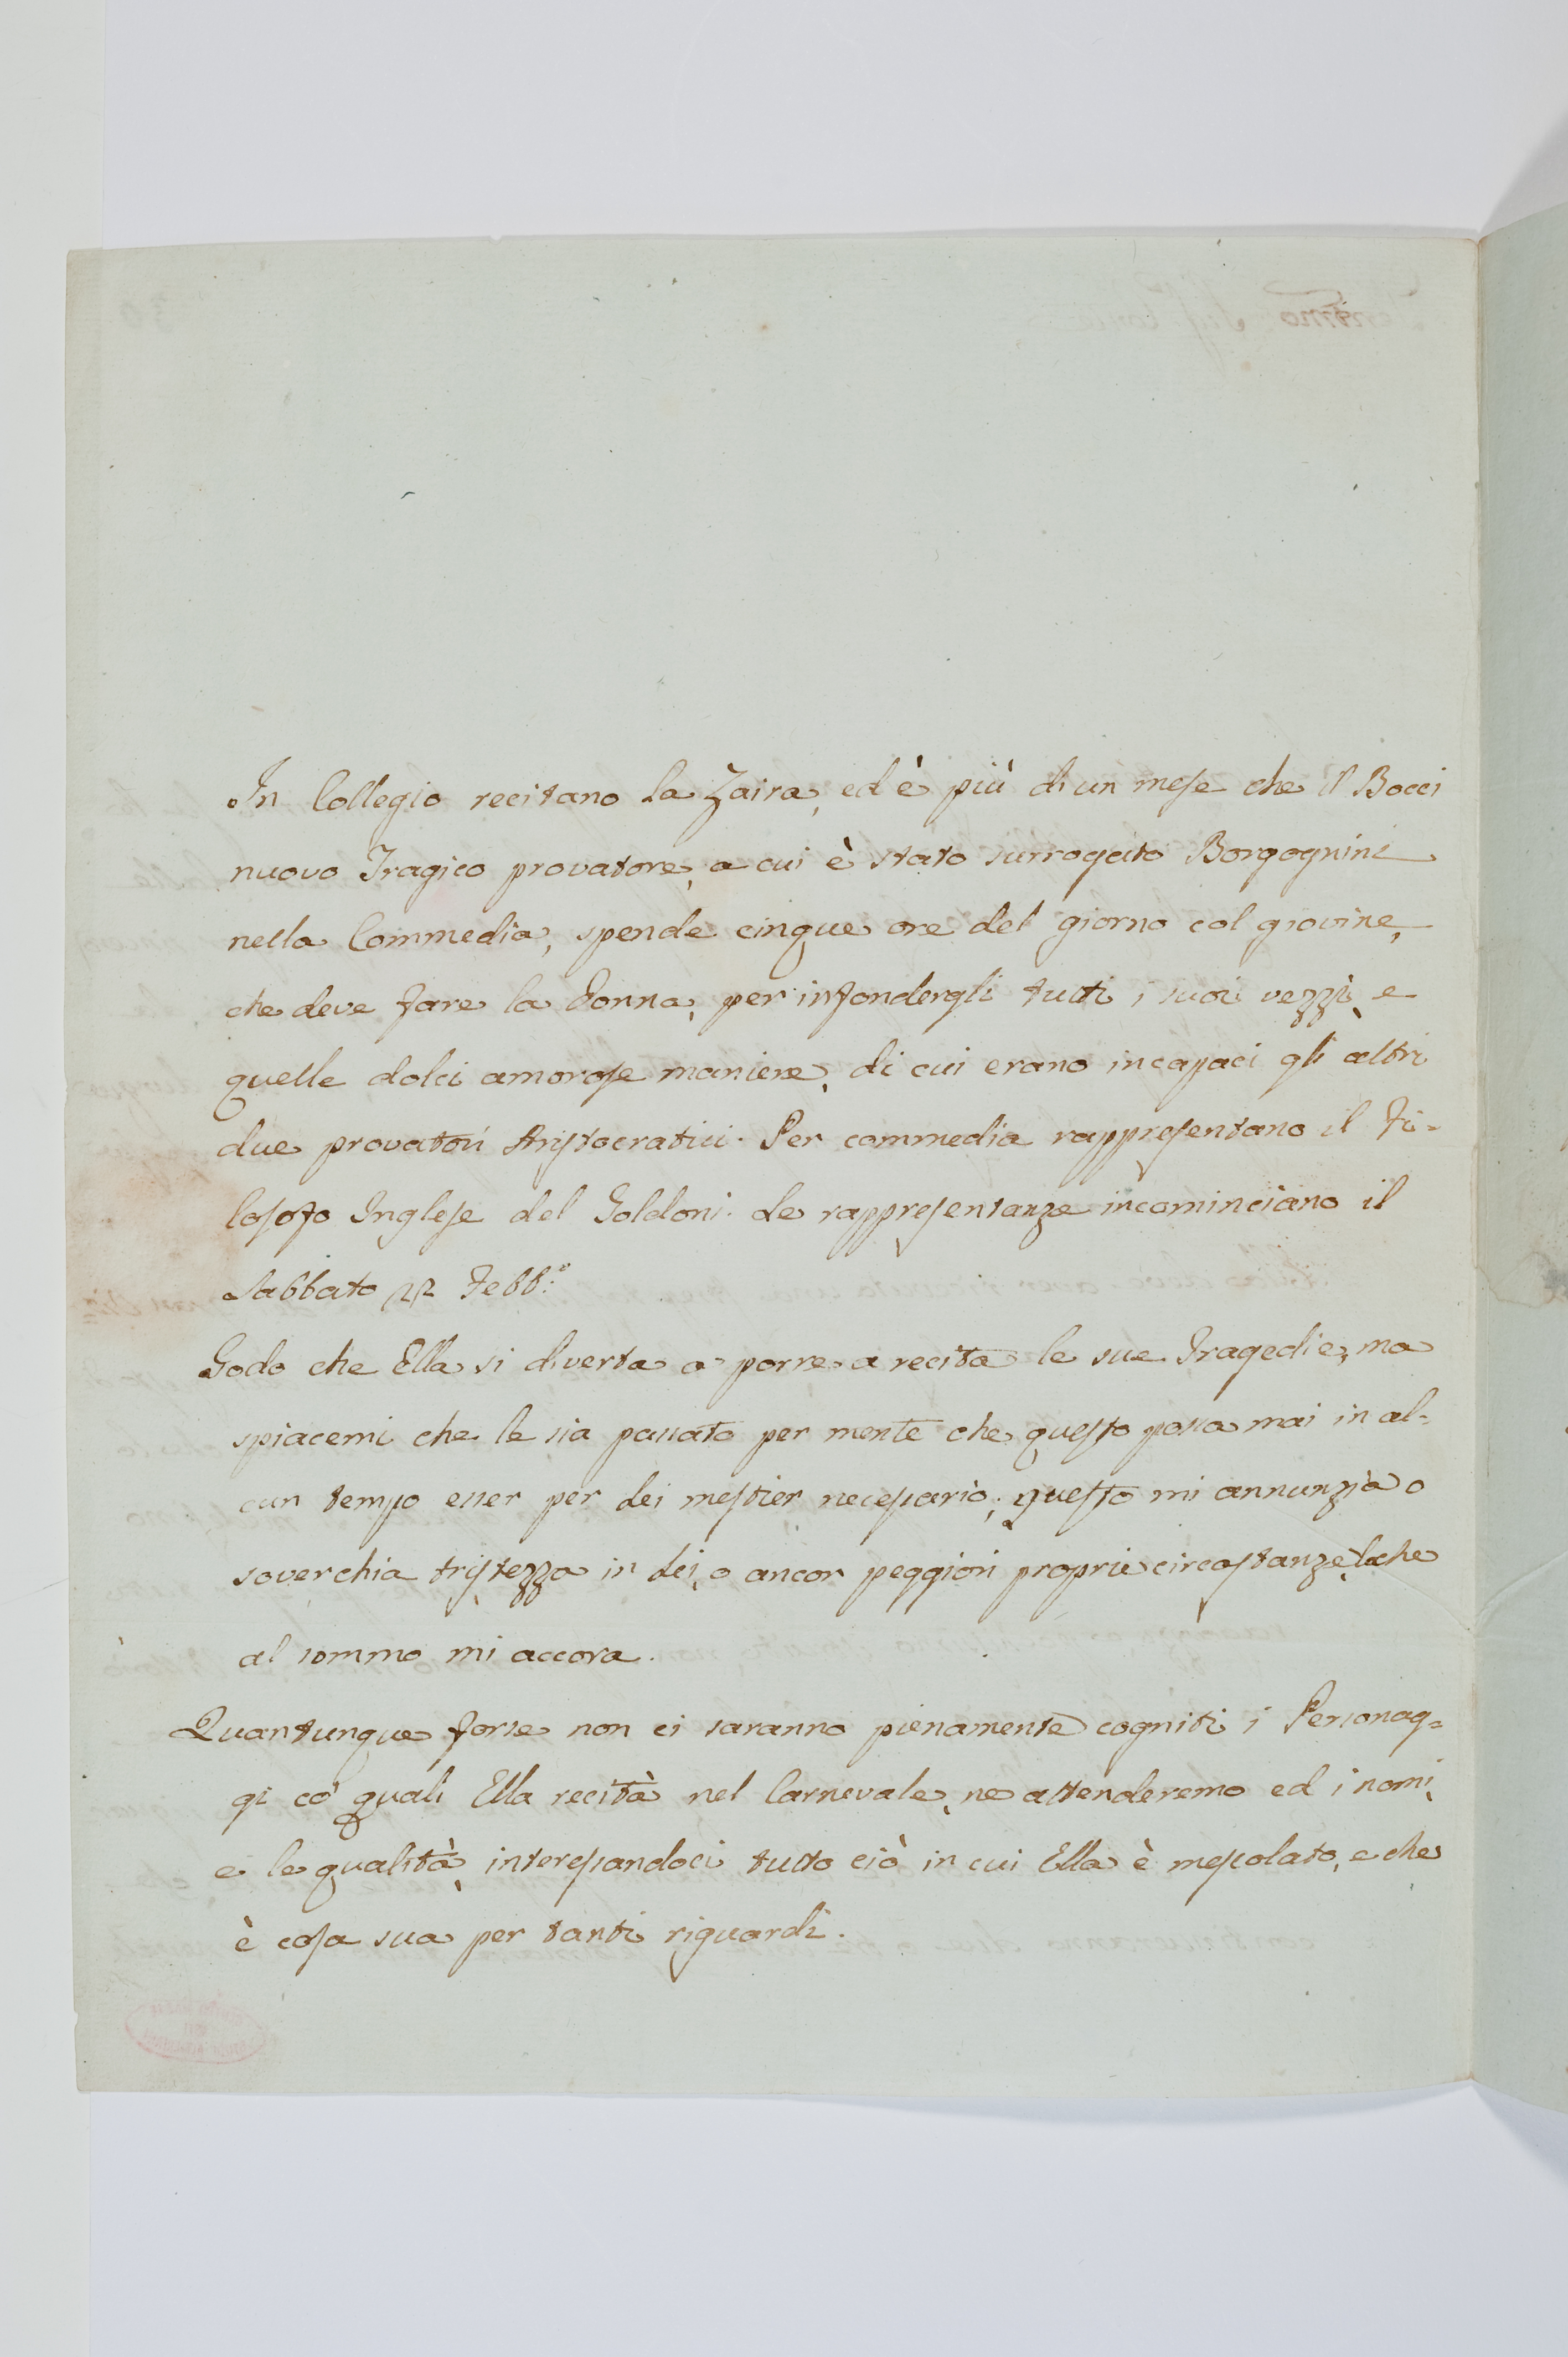 In Collegio recitano la Zaira, ed è più di un mese che il Bocci
nuovo Tragico provatore, a cui è stato surrogato Borgognini
nella Commedia, spende cinque ore del giorno col giovine,
che deve fare la Donna, per infondergli tutti i suoi vezzi, e
quelle dolci amorose maniere, di cui erano incapaci gli altri
due provatori Aristocratici. Per commedia rappresentano il Fi-
losofo Inglese del Goldoni. Le rappresentanze incominciano il
Sabbato 12 Febb.º
Godo che Ella si diverta a porre a recita le sue Tragedie, ma
spiacemi che le sia passato per mente che questo possa mai in al-
cun tempo esser per Lei mestier necessario; questo mi annunzia o
soverchia tristezza in Lei, o ancor peggiori proprie circostanze, lo che
al sommo mi accora.
Quantunque forse non ci saranno pienamente cogniti i Personag-
gi co' quali Ella recità nel Carnevale, ne attenderemo ed i nomi,
e le qualità, interessandoci tutto ciò in cui Ella è mescolato, e che
è cosa sua per tanti riguardi.